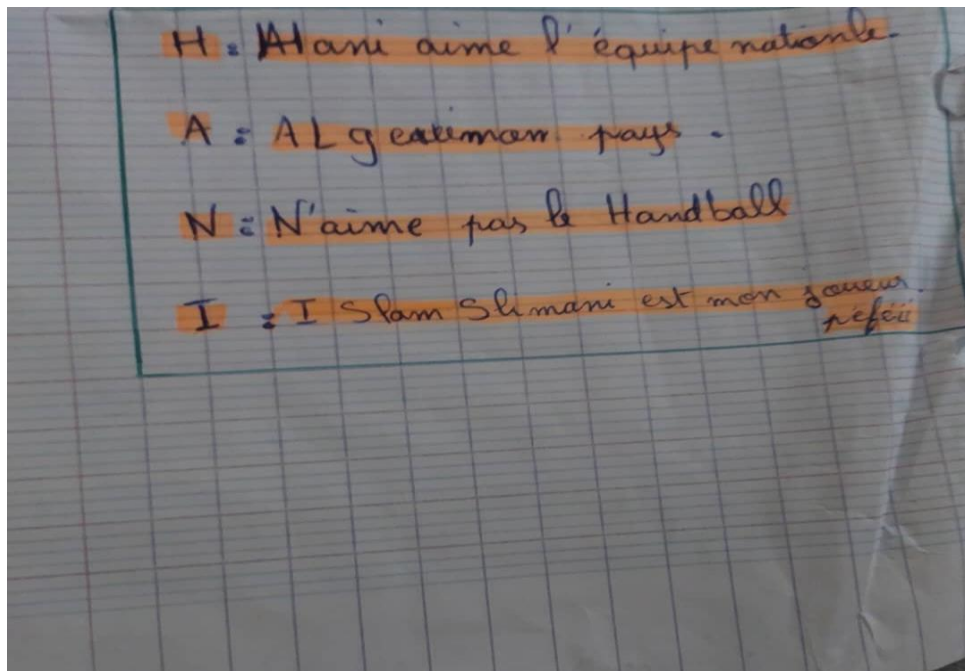 H = Hani aime l'équipe nationle.
A = ALgerieest mon pays.
N = N'aime pas le Handball
I = I Slam Slimani est mon joueur
préféré